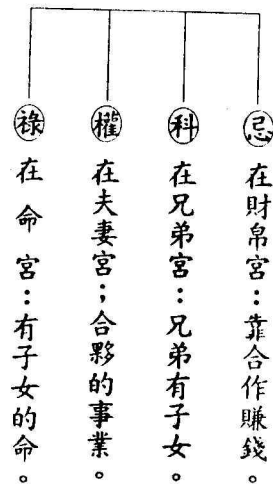 忌在財帛宮：靠合作賺錢。
科在兄弟宮：兄弟有子女。
權在夫妻宮；合夥的事業。
祿在命宮：有子女的命。